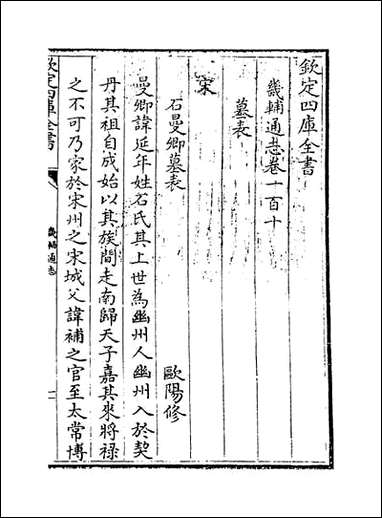 欽定四庫全書
畿輔通志卷一百十
墓表
宋
石曼卿墓表 歐陽修
曼卿諱延年姓石氏其上世為幽州人幽州入於契
丹其祖自成始以其族間走南歸天子嘉其來將祿
之不可乃家於宋州之宋城父諱補之官至太常博
欽定四庫全書
畿輔通志
一